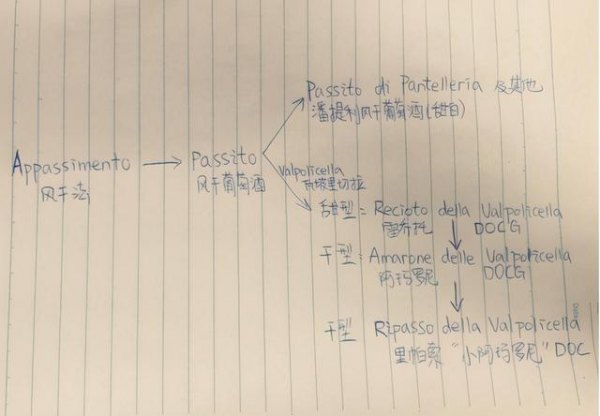 Passito di Pantelleria 及其他
潘提利风干葡萄酒(甜白)
Appassimento → Passito
风干法
风干葡萄酒
Valpolicella
瓦坡里切拉
甜型: Recioto della Valpolicella
雷乔托 DOCG
干型: Amarone delle Valpolicella
阿玛罗尼 DOCG
干型: Ripasso della Valpolicella
里帕索 "小阿玛罗尼" DOC